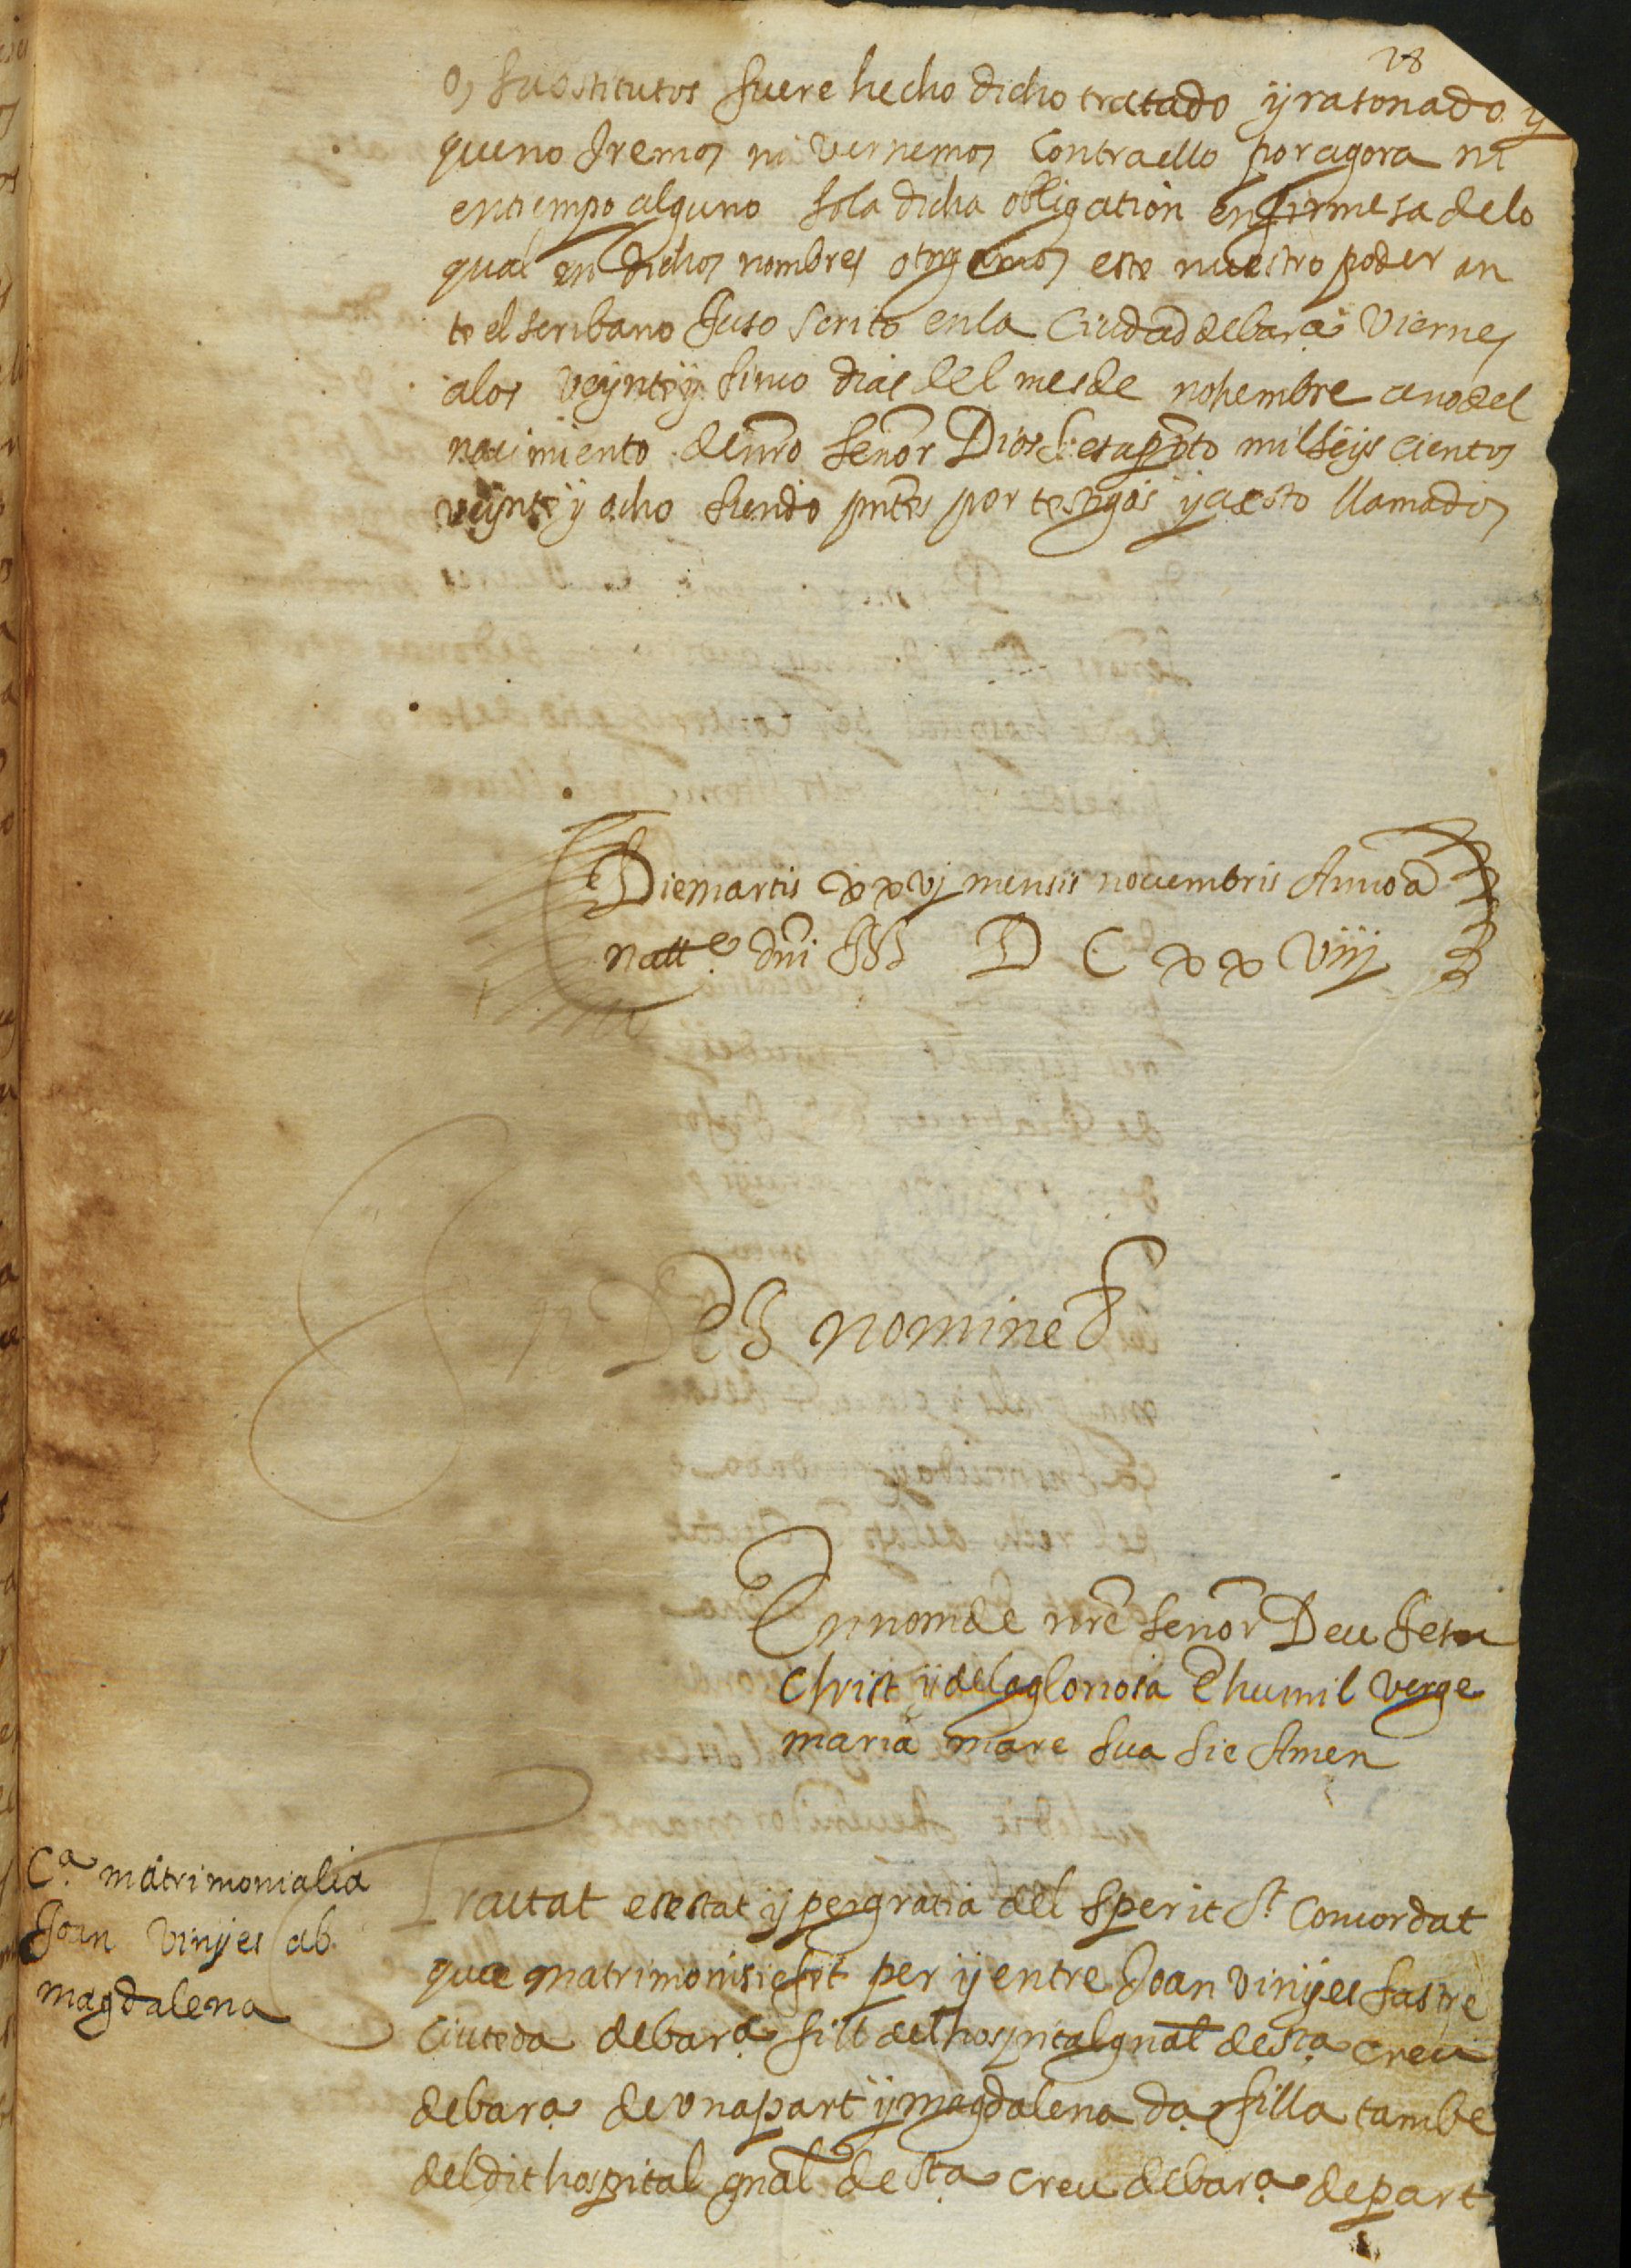 28
o, substitutos fuere hecho dicho tratado y rasonado y
que no Iremos ni vernemos Contra ello por agora ni
en tiempo alguno sola dicha obligation en firmesa de lo
qual en dichos nombres otrgamos este nuestro poder an
te el scribano Juso scrito en la Ciudad de bara Viernes
a los veynte y sinco dias del mes de nohembre ano del
nacimiento de nro senor Dios mil seys cientos
veynte y ocho siendo pntes por testigos y a esto llamados
Die martis xxvj mensis nouembris Anno a
natte dni M D C xx viij
In Dei nomine
En nom de nre senor Deu Jesu
Christ y de la gloriosa E humil verge
maria mare sua sie Amen
Ca matrimonialia
Joan vinyes ab
magdalena
Tractat es estat y per gratia del sperit St Concordat
que matrimoni sie fet per y entre Joan vinyes sastre
Ciuteda de bara fill del hospital gnal de sta creu
de bara de vna part y magdalena da filla tambe
del dit hospital gnal de sta creu de bara de part